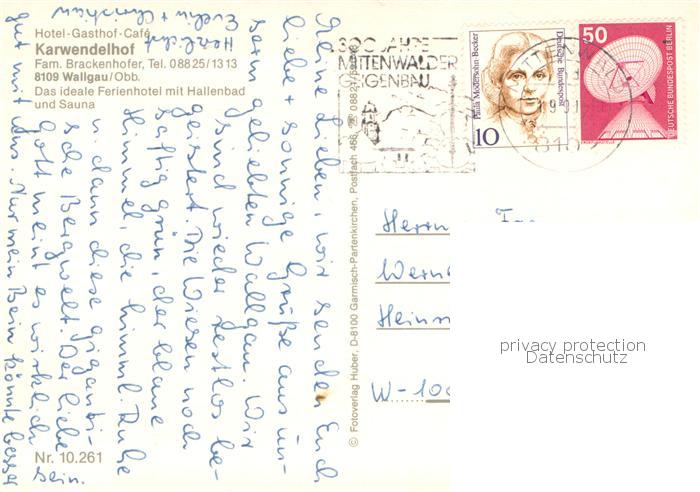 Hotel-Gasthof-Café
Karwendelhof
Fam. Brackenhofer, Tel. 08825/1313
8109 Wallgau/Obb.
Das ideale Ferienhotel mit Hallenbad
und Sauna
Meine Lieben, wir senden Euch
liebe + sonnige Grüße aus un-
serm geliebten Wallgau. Wir
sind wieder restlos be-
geistert. Die Wiesen noch
saftig grün, der blaue
Himmel, die himml. Ruhe
dann diese giganti-
sche Bergwelt. Der liebe
Gott meint es wirklich
gut mit uns. Nur mein Bein könnte besser
sein.
Herzlichst
Evelin + Christian
Nr. 10.261
© Fotoverlag Huber, D-8100 Garmisch-Partenkirchen, Postfach 466, ☎ 08821/
300 JAHRE
MITTENWALDER
GEIGENBAU
Paula Modersohn-Becker
Deutsche Bundespost
10
50
DEUTSCHE BUNDESPOST BERLIN
Herrn
Wern
Heinr
W-100
privacy protection
Datenschutz